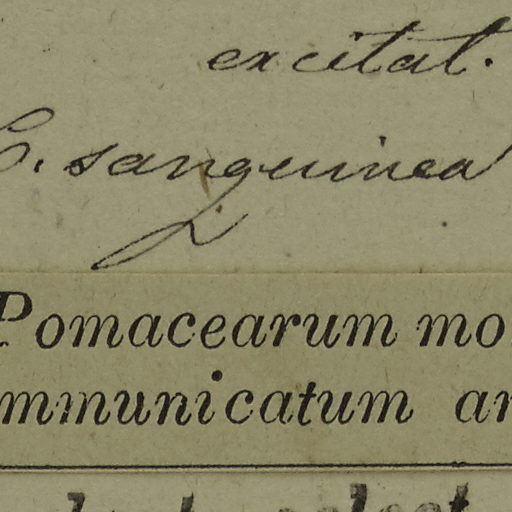 excitat.
C. sanguinea
Pomacearum mo
mmunicatum a